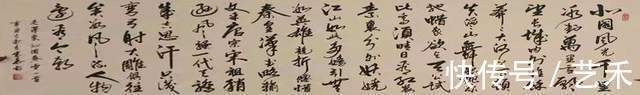 北国风光千里
冰封万里雪飘
望长城内外惟余
莽莽大河上下
顿失滔滔山舞银
蛇原驰蜡象欲与天公试
比高须晴日看红装
素裹分外妖娆
江山如此多娇引无
数英雄竞折腰惜
秦皇汉武略输
文采唐宗宋祖稍
逊风骚一代天骄
成吉思汗只识
弯弓射大雕俱往
矣数风流人物
还看今朝
毛泽东沁园春雪一首
快传号 / 艺禾